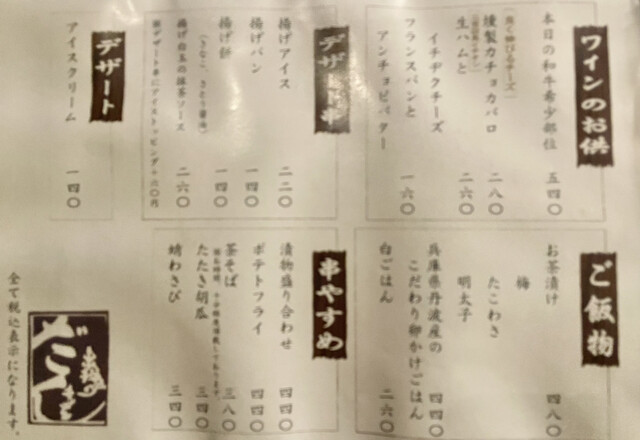 ワインのお供
本日の和牛希少部位 五四〇
燻製カチョカバロ 二八〇
生ハムと
イチヂクチーズ 二六〇
フランスパンと
アンチョビバター 一六〇
デザート串
揚げアイス 二二〇
揚げパン 一四〇
揚げ餅 一四〇
(きなこ、さとう醤油)
揚げ白玉の抹茶ソース 二六〇
※デザート串にアイストッピング+六〇円
デザート
アイスクリーム 一四〇
ご飯物
お茶漬け 四八〇
梅
たこわさ
明太子
兵庫県丹波産の
こだわり卵かけごはん 四四〇
白ごはん 二六〇
串やすめ
漬物盛り合わせ 四四〇
ポテトフライ 四四〇
茶そば 三八〇
たたき胡瓜 三四〇
蛸わさび 三四〇
全て税込表示になります。